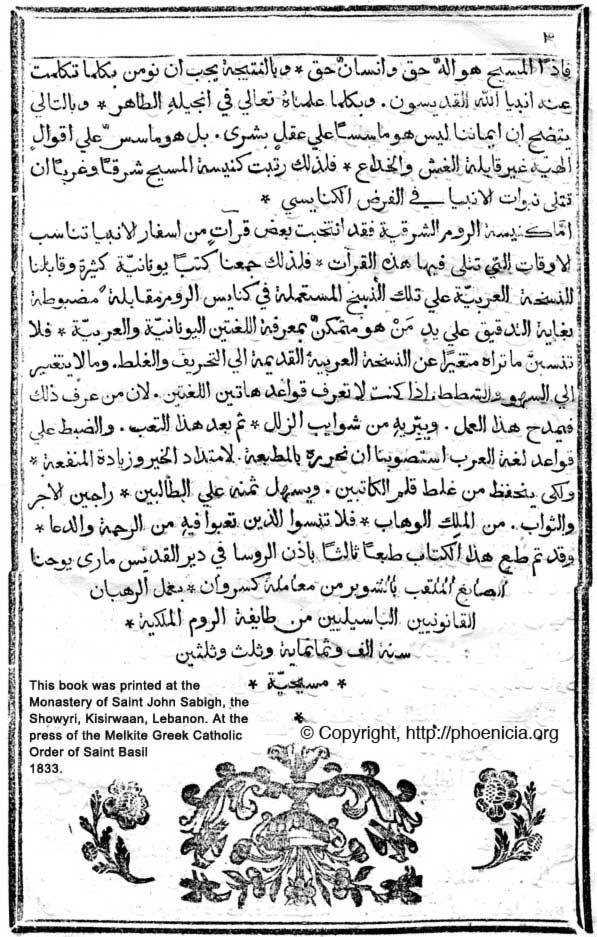 ٣
فاذًا المسيح هو الهٌ حق وانسانٌ حق * وبالنتيجة يجب ان نومن بكلما تكلمت
عنه انبيا الله القديسون . وبكلما علمناهُ تعالي في انجيلهِ الطاهر * وبالتالي
يتضح ان ايماننا ليس هو ماسسًا علي عقلٍ بشري . بل هو ماسسٌ علي اقوالٍ
الهية غير قابلة الغش والخداع * فلذلك رتبت كنيسة المسيح شرقًا وغربًا ان
تتلي نبوات الانبيا في الفرض الكنايسي *
امّا كنيسة الروم الشرقية فقد انتخبت بعض قرآتٍ من اسفار الانبيا تناسب
الاوقات التي تتلي فيها هذه القرآت * فلذلك جمعنا كتبًا يونانيّة كثيرة وقابلنا
النسخة العربيّة علي تلك النسخ المستعملة في كنايس الروم مقابلةً مضبوطة
بغاية التدقيق علي يدِ مَنْ هو متمكنٌ بمعرفة اللغتين اليونانيّة والعربيّة * فلا
تنسبنَّ ما تراه متغيرًا عن النسخة العربية القديمة الي التحريف والغلط . وما لا يتغير
الي السهو والشطط . اذا كنت لا تعرف قواعد هاتين اللغتين . لان من عرف ذلك
فيمدح هذا العمل . ويبرّيه من شوايب الزلل * ثم بعد هذا التعب . والضبط علي
قواعد لغة العرب استصوبنا ان نحررهُ بالمطبعة . لامتداد الخير وزيادة المنفعة *
ولكي يتحفظ من غلط قلم الكاتبين . ويسهل ثمنه علي الطالبين * راجين الاجر
والثواب . من الملك الوهاب * فلا تنسوا الذين تعبوا فيهِ من الرحمة والدعا *
وقد تم طبع هذا الكتاب طبعًا ثالثًا باذن الروسا في دير القديس ماري يوحنا
الصابغ الملقب بالشوير من معاملة كسروان * بعمل الرهبان
القانونيين الباسيليين من طايفة الروم الملكية *
سنة الف وثمانماية وثلث وثلثين
* مسيحيّة *
*
This book was printed at the
Monastery of Saint John Sabigh, the
Showyri, Kisirwaan, Lebanon. At the
press of the Melkite Greek Catholic
Order of Saint Basil
1833.
© Copyright, http://phoenicia.org